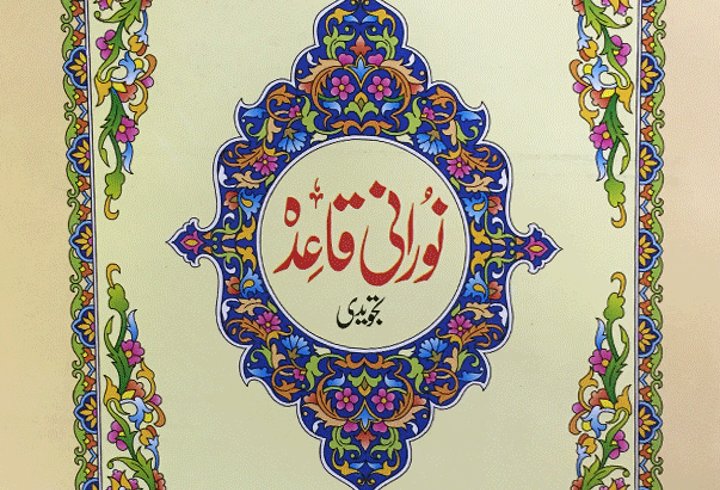 نُورانی قاعِدہ
تجویدی